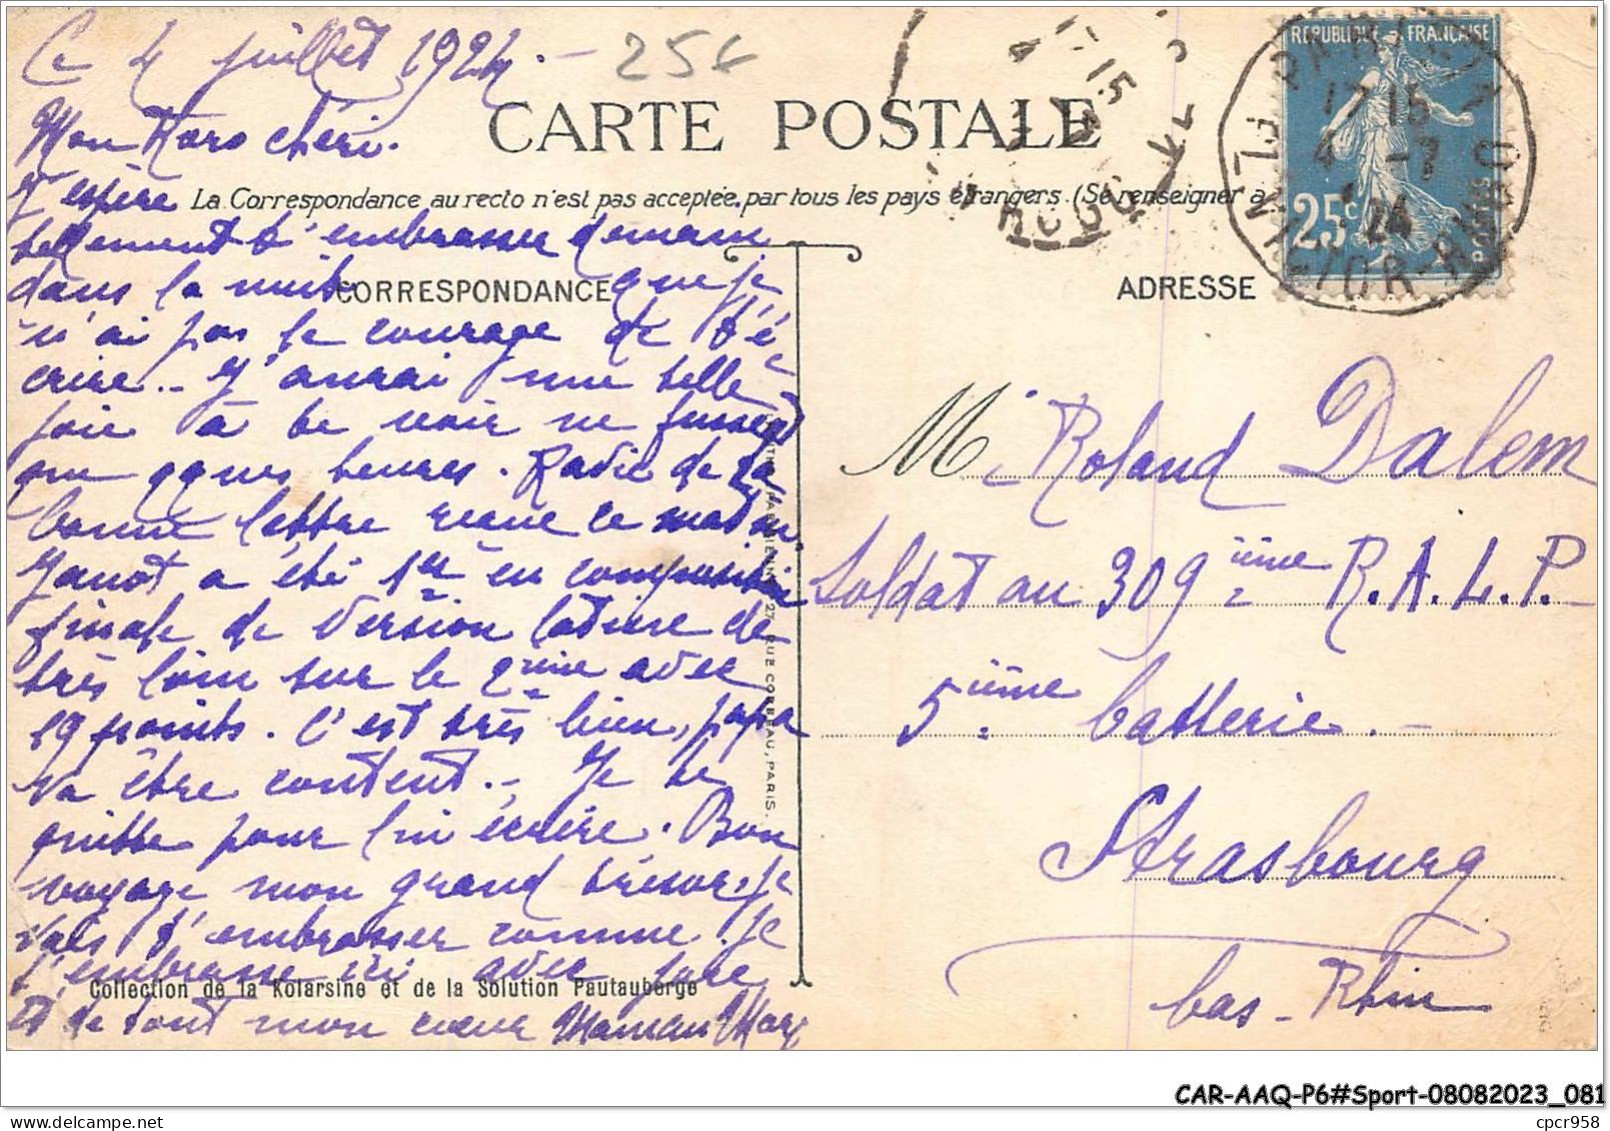 Ce 4 juillet 1924. -
254
CARTE POSTALE
Mon chéri.
J'espère
La Correspondance au recto n'est pas acceptée par tous les pays étrangers. (Se renseigner à
tellement t'embrasser demain
dans la nuit que je
CORRESPONDANCE
n'ai pas le courage de t'é
crire.. J'aurai une telle
joie à te voir ne fusse
que qques heures. Ravie de ta
bonne lettre reçue ce matin
Janot a été 1er en composition
finale de version latine de
très loin sur le 2ème avec
19 points. C'est très bien, papa
va être content. - Je te
quitte pour lui écrire. Bon
voyage mon grand trésor. Je
vais t'embrasser comme je
t'embrasse ici avec joie
Collection de la Kolarsine et de la Solution Pautauberge
Et de tout mon coeur Maman
27, RUE CORBEAU, PARIS.
REPUBLIQUE FRANÇAISE
25c
POSTES
17 15
4 -7
24
ADRESSE
M. Roland Dalem
Soldat au 309ième R.A.L.P.
5ième batterie. -
Strasbourg
bas - Rhin
CAR-AAQ-P6#Sport-08082023_081
cpcr958